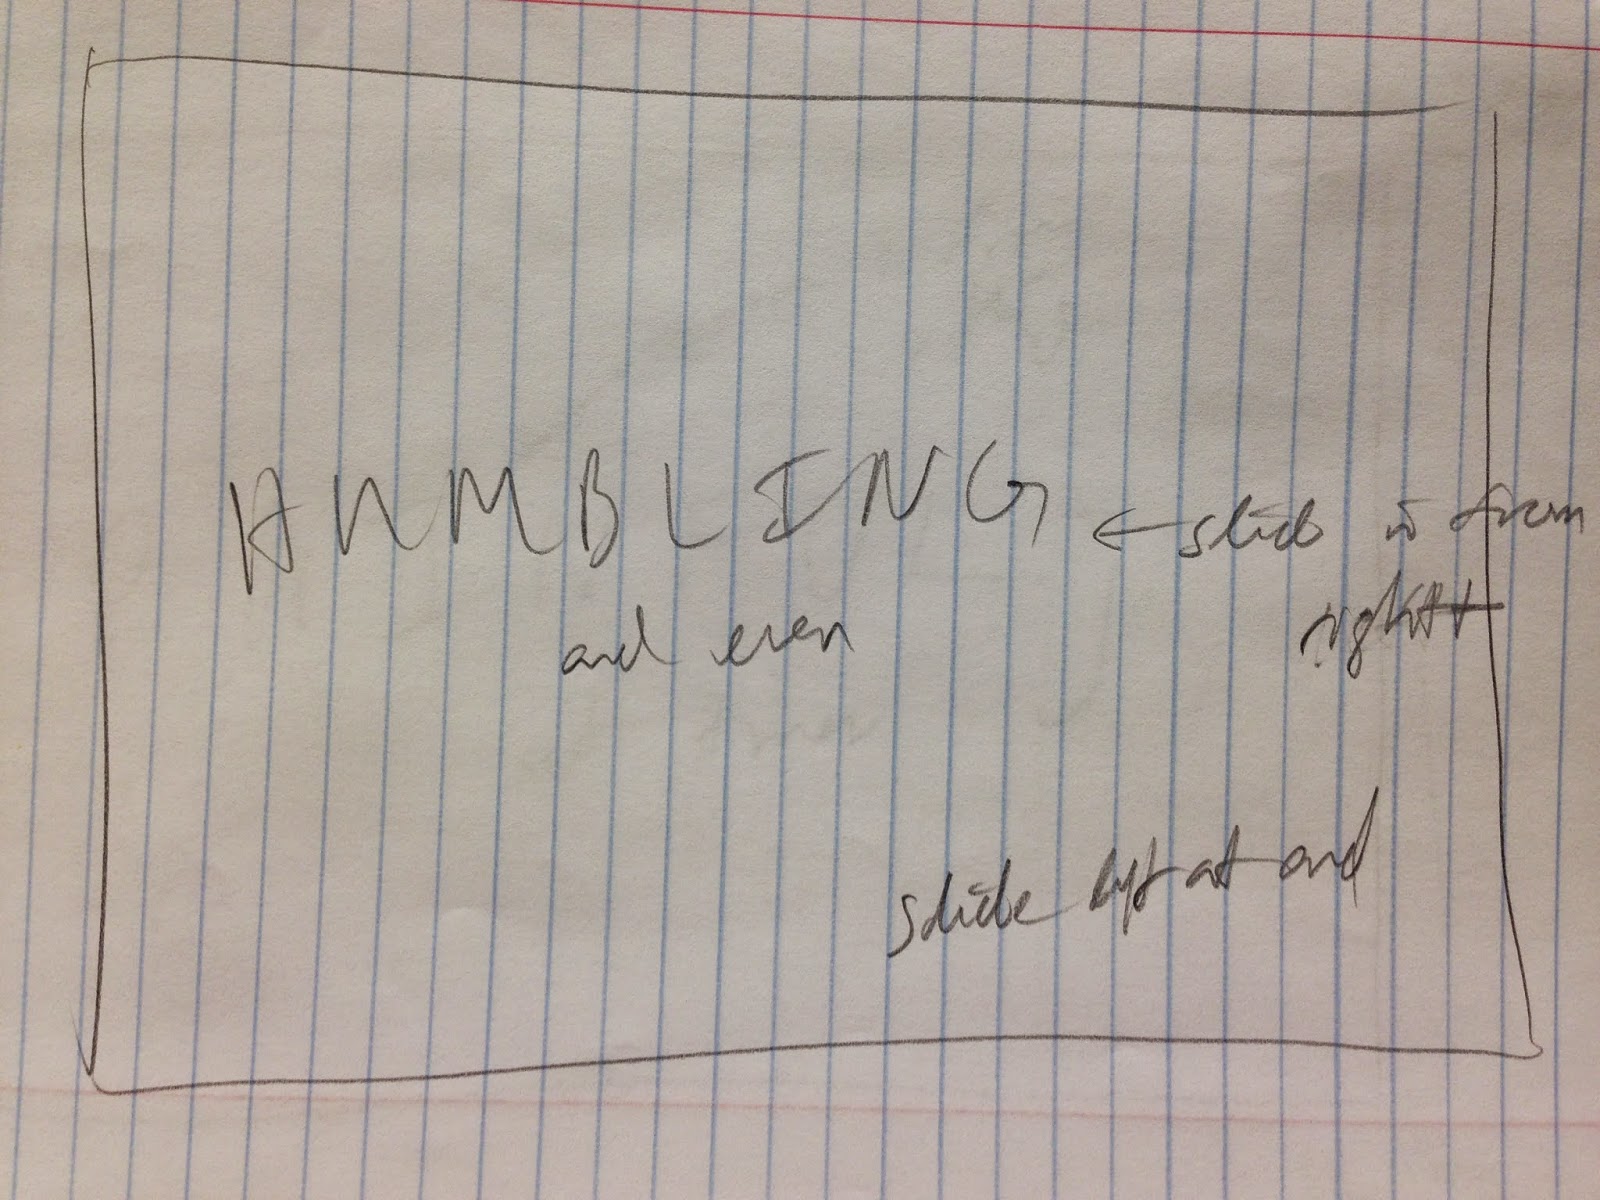 HUMBLING ← slide in from
right
and even
slide left at end